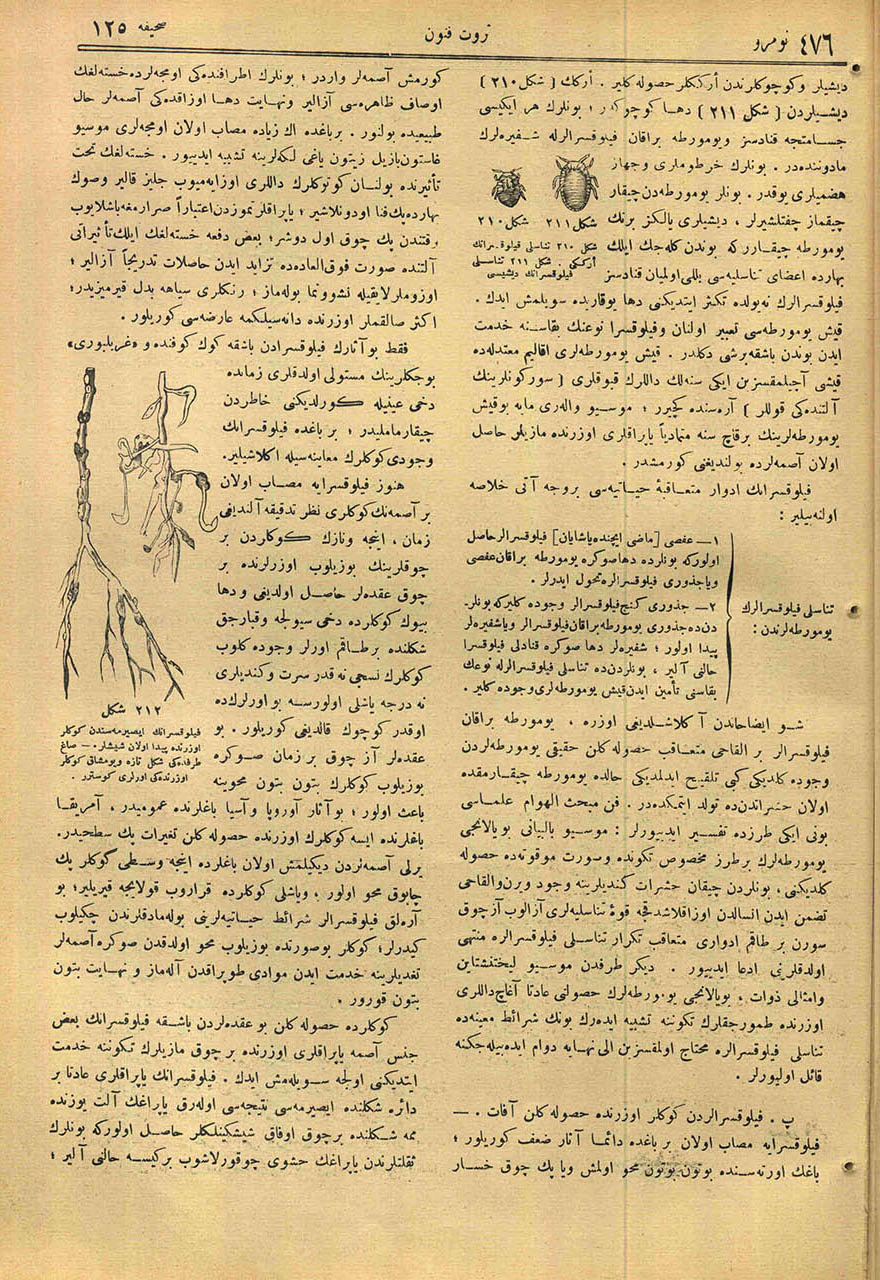 نومرو ٤٧٦
ثروت فنون
صحیفه ١٢٥
دیشیلر وکوچوکلرندن أرککلر حصوله کلیر . أرکك ( شکل ٢١٠ )
دیشیلردن ( شکل ٢١١ ) دها کوچوکدر ؛ بونلرك هر ایکیسی
جسامتجه قنادسز ویومورطه براقان فیلوقسرالرله شفیره‌لرك
مادوننده‌در . بونلرك خرطوملری وجهاز
هضمیلری یوقدر . بونلر یومورطه‌دن چیقار
چیقماز چفتلشیرلر ، دیشیلری یالکز برتك
یومورطه چیقاررکه بوندن کله‌جك ایلك
بهارده اعضای تناسلیه‌سی بللی اولمیان قنادسز
شکل ٢١١ شکل ٢١٠
شکل ٢١٠ تناسلی فیلوقسرانك
أرککی . شکل ٢١١ تناسلی
فیلوقسرانك دیشیسی
فیلوقسرالرك نه‌یولده تکثر ایتدیکنی دها یوقاریده سویلمش ایدك .
قیش یومورطه‌سی تعبیر اولنان وفیلوقسرا نوعنك بقاسنه خدمت
ایدن بوندن باشقه برشی دکلدر . قیش یومورطه‌لری اقالیم معتدله‌ده
قیشی آچیلمقسزین ایکی سنه‌لك داللرك قبوقلری ( سورکونلرینك
آلتنده‌کی قوللر ) آره‌سنده کچیرر ؛ موسیو واله‌ری مایه بوقیش
یومورطه‌لرینك برقاچ سنه متمادیاً یاپراقلری اوزرنده مازیلر حاصل
اولان آصمه‌لرده بولندیغنی کورمشدر .
فیلوقسرانك ادوار متعاقبهٔ حیاتیه‌سی بروجه آتی خلاصه
اولنه‌بیلیر :
تناسلی فیلوقسرالرك
یومورطه‌لرندن :
١ — عفصی [ ماضی ایچنده یاشایان ] فیلوقسرالر حاصل
اولورکه بونلرده دها صوکره یومورطه براقان عفصی
ویا جذوری فیلوقسرالره تحول ایدرلر .
٢ — جذوری کنج فیلوقسرالر وجوده کلیرکه بونلر‌
دن‌ده جذوری یومورطه براقان فیلوقسرالر ویا شفیره‌لر
پیدا اولور ؛ شفیره‌لر دها صوکره قنادلی فیلوقسرا
حالنی آلیر ، بونلردن‌ده تناسلی فیلوقسرالرله نوعك
بقاسنی تأمین ایدن قیش یومورطه‌لری وجوده کلیر .
شو ایضاحاتدن آکلاشلدیغی اوزره ، یومورطه براقان
فیلوقسرالر بر القاحی متعاقب حصوله کلن حقیقی یومورطه‌لردن
وجوده کلدیکی کبی تلقیح ایدلمدیکی حالده یومورطه چیقارمقده
اولان حشراتدن‌ده تولد ایتمکده‌در . فن مبحث الهوام علماسی
بونی ایکی طرزده تفسیر ایدییورلر : موسیو بالبیانی بویالانجی
یومورطه‌لرك برطرز مخصوص تکونده وصورت موقوته‌ده حصوله
کلدیکنی ، بونلردن چیقان حشرات کندیلرینه وجود ویرن والقاحی
تضمن ایدن انسالدن اوزاقلاشدقجه قوهٔ تناسلیه‌لری آزالوب آزچوق
سورن بر طاقم ادواری متعاقب تکرار تناسلی فیلوقسرالره منتهی
اولدقلرینی ادعا ایدییور . دیکر طرفدن موسیو لیختنشتاین
وامثالی ذوات ، بویالانجی یومورطه‌لرك حصولنی عادتا آغاج داللری
اوزرنده طمورجقلرك تکوننه تشبیه ایده‌رك بونك شرائط معینه‌ده
تناسلی فیلوقسرالره محتاج اولمقسزین الی نهایه دوام ایده‌بیله‌جکنه
قائل اولیورلر .
پ . فیلوقسرالردن کوکلر اوزرنده حصوله کلن آفات . —
فیلوقسرایه مصاب اولان بر باغده دائما آثار ضعف کوریلور ؛
باغك اورته‌سنده بوتون بوتون محو اولمش ویا پك چوق خسار
کورمش آصمه‌لر واردر ؛ بونلرك اطرافنده‌کی اومجه‌لرده خسته‌لغك
اوصاف ظاهره‌سی آزالیر ونهایت دها اوزاقده‌کی آصمه‌لر حال
طبیعیده بولنور . برباغده اك زیاده مصاب اولان اومجه‌لری موسیو
غاستون بازیل زیتون یاغی لکه‌لرینه تشبیه ایدییور . خسته‌لغك تحت
تأثیرنده بولنان کوتوکلرك داللری اوزایه‌میوب جلیز قالیر وصوك
بهارده پك فنا اودونلاشیر ؛ یاپراقلر تموزدن اعتباراً صرارمغه باشلایوب
وقتندن پك چوق اول دوشر ؛ بعض دفعه خسته‌لغك ایلك تأثیراتی
آلتنده صورت فوق‌العاده‌ده تزاید ایدن حاصلات تدریجاً آزالیر ؛
اوزوملر لایقیله نشوونما بوله‌ماز ؛ رنکلری سیاهه بدل قیرمیزیدر ؛
اکثر صالقملر اوزرنده دانه‌سیلکمه عارضه‌سی کوریلور .
فقط بو آثارك فیلوقسرادن باشقه کوك کوفنده و «غریبوری»
بوجکلرینك مستولی اولدقلری زمانده
دخی عینیله کورلدیکنی خاطردن
چیقارماملیدر ؛ بر باغده فیلوقسرانك
وجودی کوکلرك معاینه‌سیله اکلاشیلیر .
هنوز فیلوقسرایه مصاب اولان
بر آصمه‌نك کوکلری نظر تدقیقه آلندیغی
زمان ، اینجه ونازك کوکلردن بر
چوقلرینك بوزیلوب اوزرلرنده بر
چوق عقده‌لر حاصل اولدیغی ودها
بیوك کوکلرده دخی سیولجه وقبارجق
شکلنده برطاقم اورلر وجوده کلوب
کوکلرك نسجی نه قدر سرت وکندیلری
نه درجه یاشلی اولورسه بو اورلرك‌ده
اوقدر کوچوك قالدیغی کوریلور . بو
عقده‌لر آز چوق بر زمان صوکره
بوزیلوب کوکلرك بتون بتون محوینه
شکل ٢١٢
فیلوقسرانك ایصیرمه‌سندن کوکلر
اوزرنده پیدا اولان شیشلر . — صاغ
طرفده‌کی شکل تازه ویومشاق کوکلر
اوزرنده‌کی اورلری کوسترر .
باعث اولور ؛ بو آثار آوروپا وآسیا باغلرنده عمومیدر ، آمریقا
باغلرنده ایسه کوکلرك اوزرنده حصوله کلن تغیرات پك سطحیدر .
یرلی آصمه‌لردن دیکیلمش اولان باغلرده اینجه وسطی کوکلر پك
چابوق محو اولور ، ویاشلی کوکلرده قراروب قولایجه قیریلیر ؛ بو
آره‌لق فیلوقسرالر شرائط حیاتیه‌لرینی بوله‌مادقلرندن چکیلوب
کیدرلر ؛ کوکلر بوصورتده بوزیلوب محو اولدقدن صوکره آصمه‌لر
تغدیلرینه خدمت ایدن موادی طوپراقدن آله‌ماز و نهایت بتون
بتون قورور .
کوکلرده حصوله کلن بو عقده‌لردن باشقه فیلوقسرانك بعض
جنس آصمه یاپراقلری اوزرنده برچوق مازیلرك تکوننه خدمت
ایتدیکنی اولجه سویله‌مش ایدك . فیلوقسرانك یاپراقلری عادتا بر
دائره شکلنده ایصیرمه‌سی نتیجه‌سی اوله‌رق یاپراغك آلت یوزنده
ممه شکلنده برچوق اوفاق شیشکینلکلر حاصل اولورکه بونلرك
ثقلتلرندن یاپراغك حشوی چوقورلاشوب برکیسه حالنی آلیر ؛